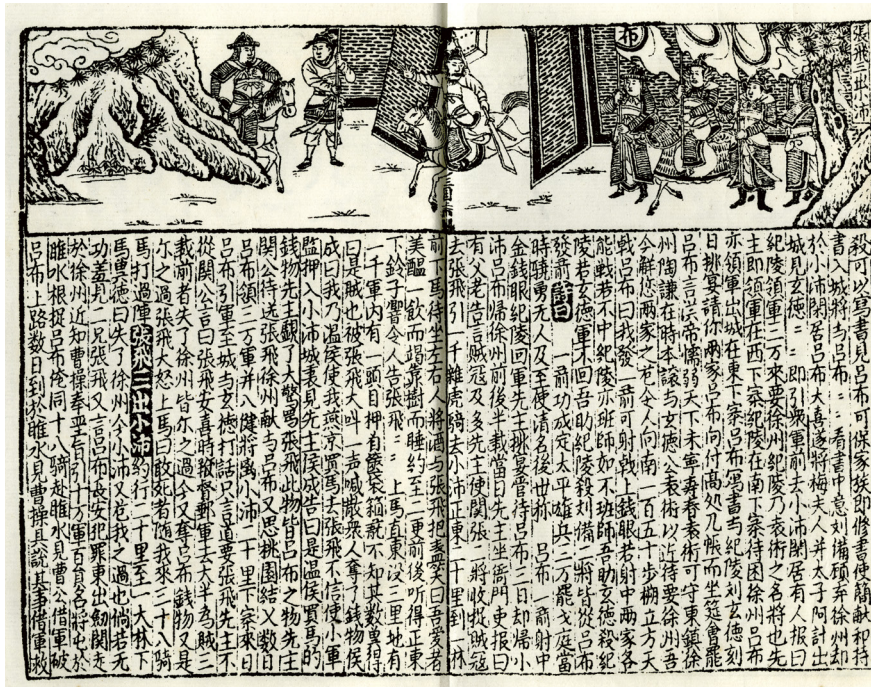 張飛三出小沛
布
殺可以寫書見吕布可保家族即修書使簡献和持
書入城將与吕布二看書中意刘備頋弃徐州却
於小沛閑居吕布大喜遂將梅夫人并太子阿計出
城見玄德二二即引衆軍前去小沛閑居有人報曰
紀陵領軍二万來要徐州紀陵乃袁術之名將也先
主即領軍在西下寨紀陵在南下寨待因徐州吕布
亦領軍出城在東下寨吕布寫書与紀陵刘玄德刻
日挑宴請你兩家吕布向付高処几帳而坐筵會罷
吕布言漢帝懦弱天下未寧壽春袁術可守東鎮徐
州陶謙在時本讓与玄德公袁術以近待要徐州吾
今觧您两家之危令人向南一百五十步栅立方天
戟吕布曰我發一箭可射戟上錢眼若射中两家各
能戦若不中紀陵亦班師如不班師吾助玄德殺紀
陵若玄德軍不回吾助紀陵殺刘備二將皆從吕布
發箭 詩曰 一箭功成定太平雄兵二万罷戈庭當
時驍勇无人及至使清名後世称 吕布一箭射中
金錢眼紀陵回軍先主挑宴管待吕布二日却帰小
沛吕布帰徐州前後半載當日先主坐衙門吏報曰
有父老告言贼冦及多先主便関張二將收捉贼冦
去張飛引一千雜虎騎去小沛正東一十里到一林
前下馬待坐左右人將酒与張飛把盞笑曰吾愛者
美醖一飲而竭靠樹而睡约至二更前後听得正東
下鈴子響令人告張飛二二上馬直東没三里地有
一千軍内有一頭目押自馱袋箱就不知其数果得
曰是賊也被張飛大叫一声喊散衆人奪了錢物侯
成曰我乃温侯使我燕京買馬去張飛不信使小軍
監押入小沛城裏見先主侯成告曰是温侯買馬的
錢物先主覷了大驚罵張飛此物皆吕布之物先主
閑公待选張飛徐州献与吕布又思桃園結义数日
吕布領二万軍并八健將离小沛二十里下寨來日
吕布引軍至城与玄德打話只言道要張飛先主不
從関公言曰張飛安喜時殺督郵軍去大半為賊三
載前者失了徐州皆尔之過今又奪吕布錢物又是
尔之過張飛大怒上馬曰敢死者随我來三十八騎
馬打過陣 張飛三出小沛 约行二十里至一大林下
馬思德曰失了徐州今小沛又危我之過也倘若无
功羞見二兄張飛又言吕布長安犯罪東出劎関走
於徐州近知曹操奉聖旨引十万軍百員名將屯於
睢水根捉吕布俺同十八騎赴睢水見曹公借軍破
吕布上路数日到於睢水見曹操具說其事借軍救